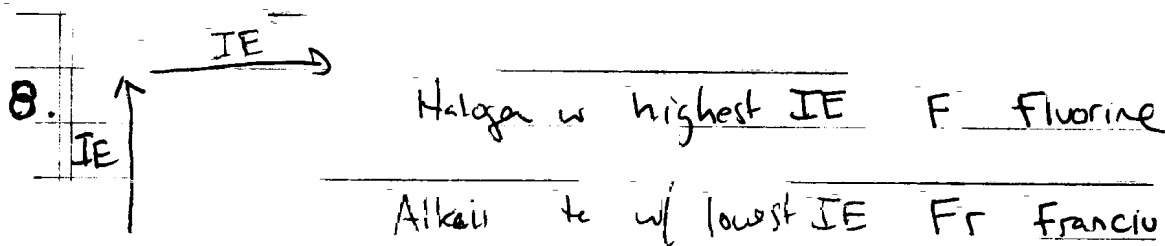 IE
8.
Halogen w highest IE F Fluorine
IE
w/ lowest IE Fr Franciu